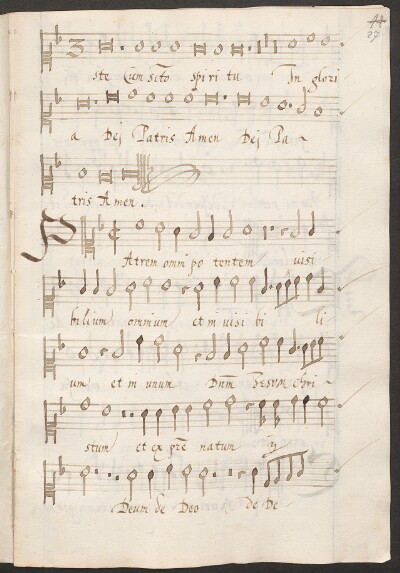 44
27
3
ste Cum scto spiri tu In glori
a Dej Patris Amen Dej Pa ~
tris Amen
Patrem omni po tentem uisi
bilium omnium et in uisi bi li
um et in unum Dnm Jesum Chri ~
stum et ex pre natum ij
Deum de Deo de De